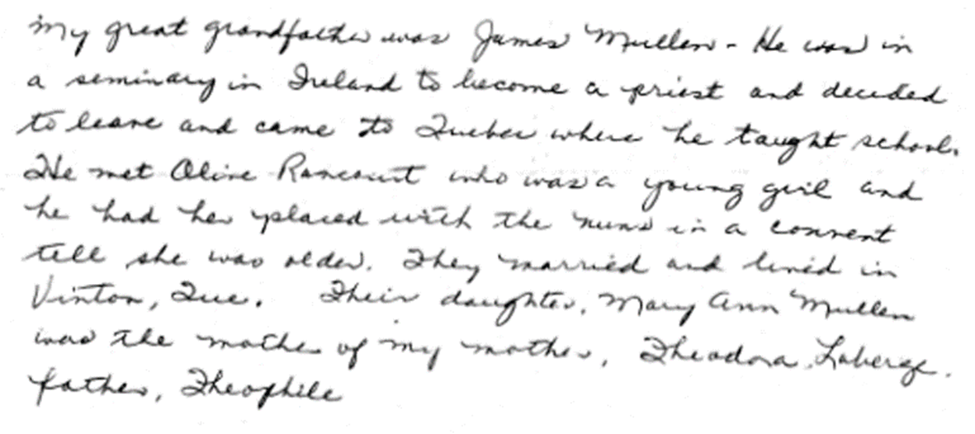 My great grandfather was James Mullen - He was in
a seminary in Ireland to become a priest and decided
to leave and came to Quebec where he taught school.
He met Olive Rancourt who was a young girl and
he had her placed with the nuns in a convent
tell she was older. They married and lived in
Vinton, Que. Their daughter, Mary Ann Mullen
was the mother of my mother, Theodora Laberge.
father, Theophile